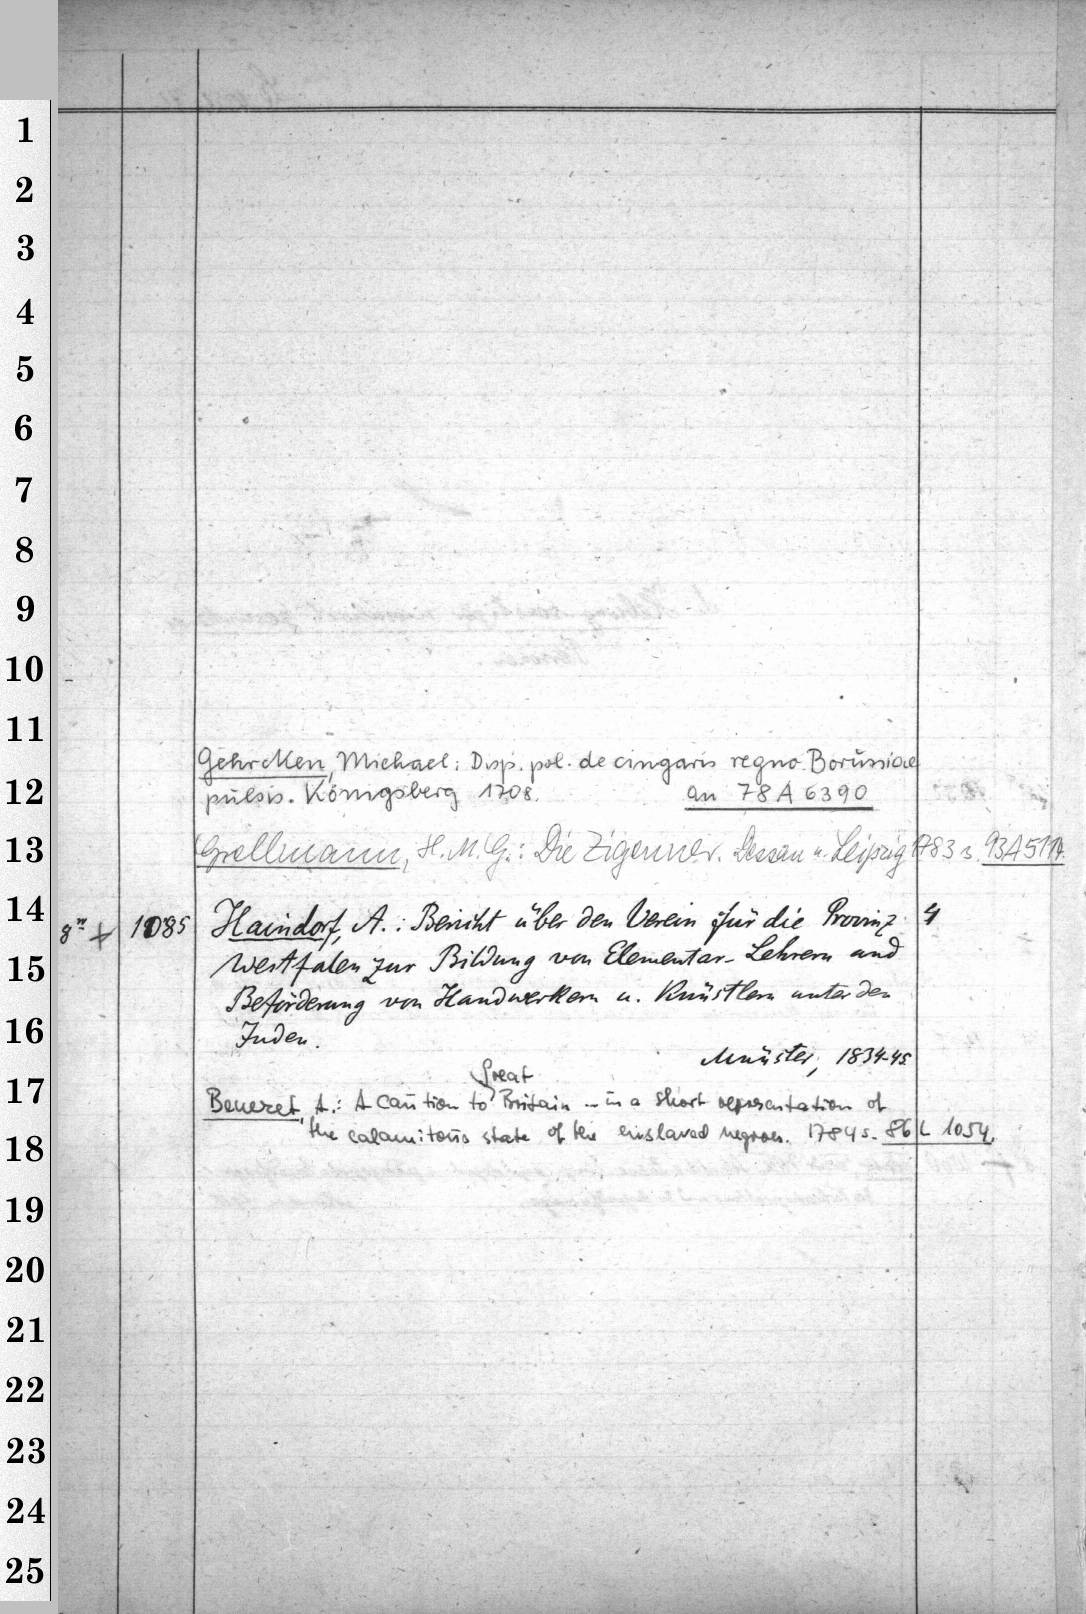 1
2
3
4
5
6
7
8
9
10
11
Gehrcken, Michael: Disp. pol. de cingaris regno Borussiae
12 pulsis. Königsberg 1708. an 78 A 6390
13 Grellmann, H. M. G.: Die Zigeuner. Dessau u. Leipzig 1783 s. 93A5114
14 8" + 1085 Haindorf, A.: Bericht über den Verein für die Provinz 4
15 Westfalen zur Bildung von Elementar-Lehrern und
Beförderung von Handwerkern u. Künstlern unter den
16 Juden.
Münster, 1834-45
17 Great
Benezet, A.: A caution to Britain - in a short representation of
18 the calamitous state of the enslaved negroes. 1784 s. 86 L 1054.
19
20
21
22
23
24
25